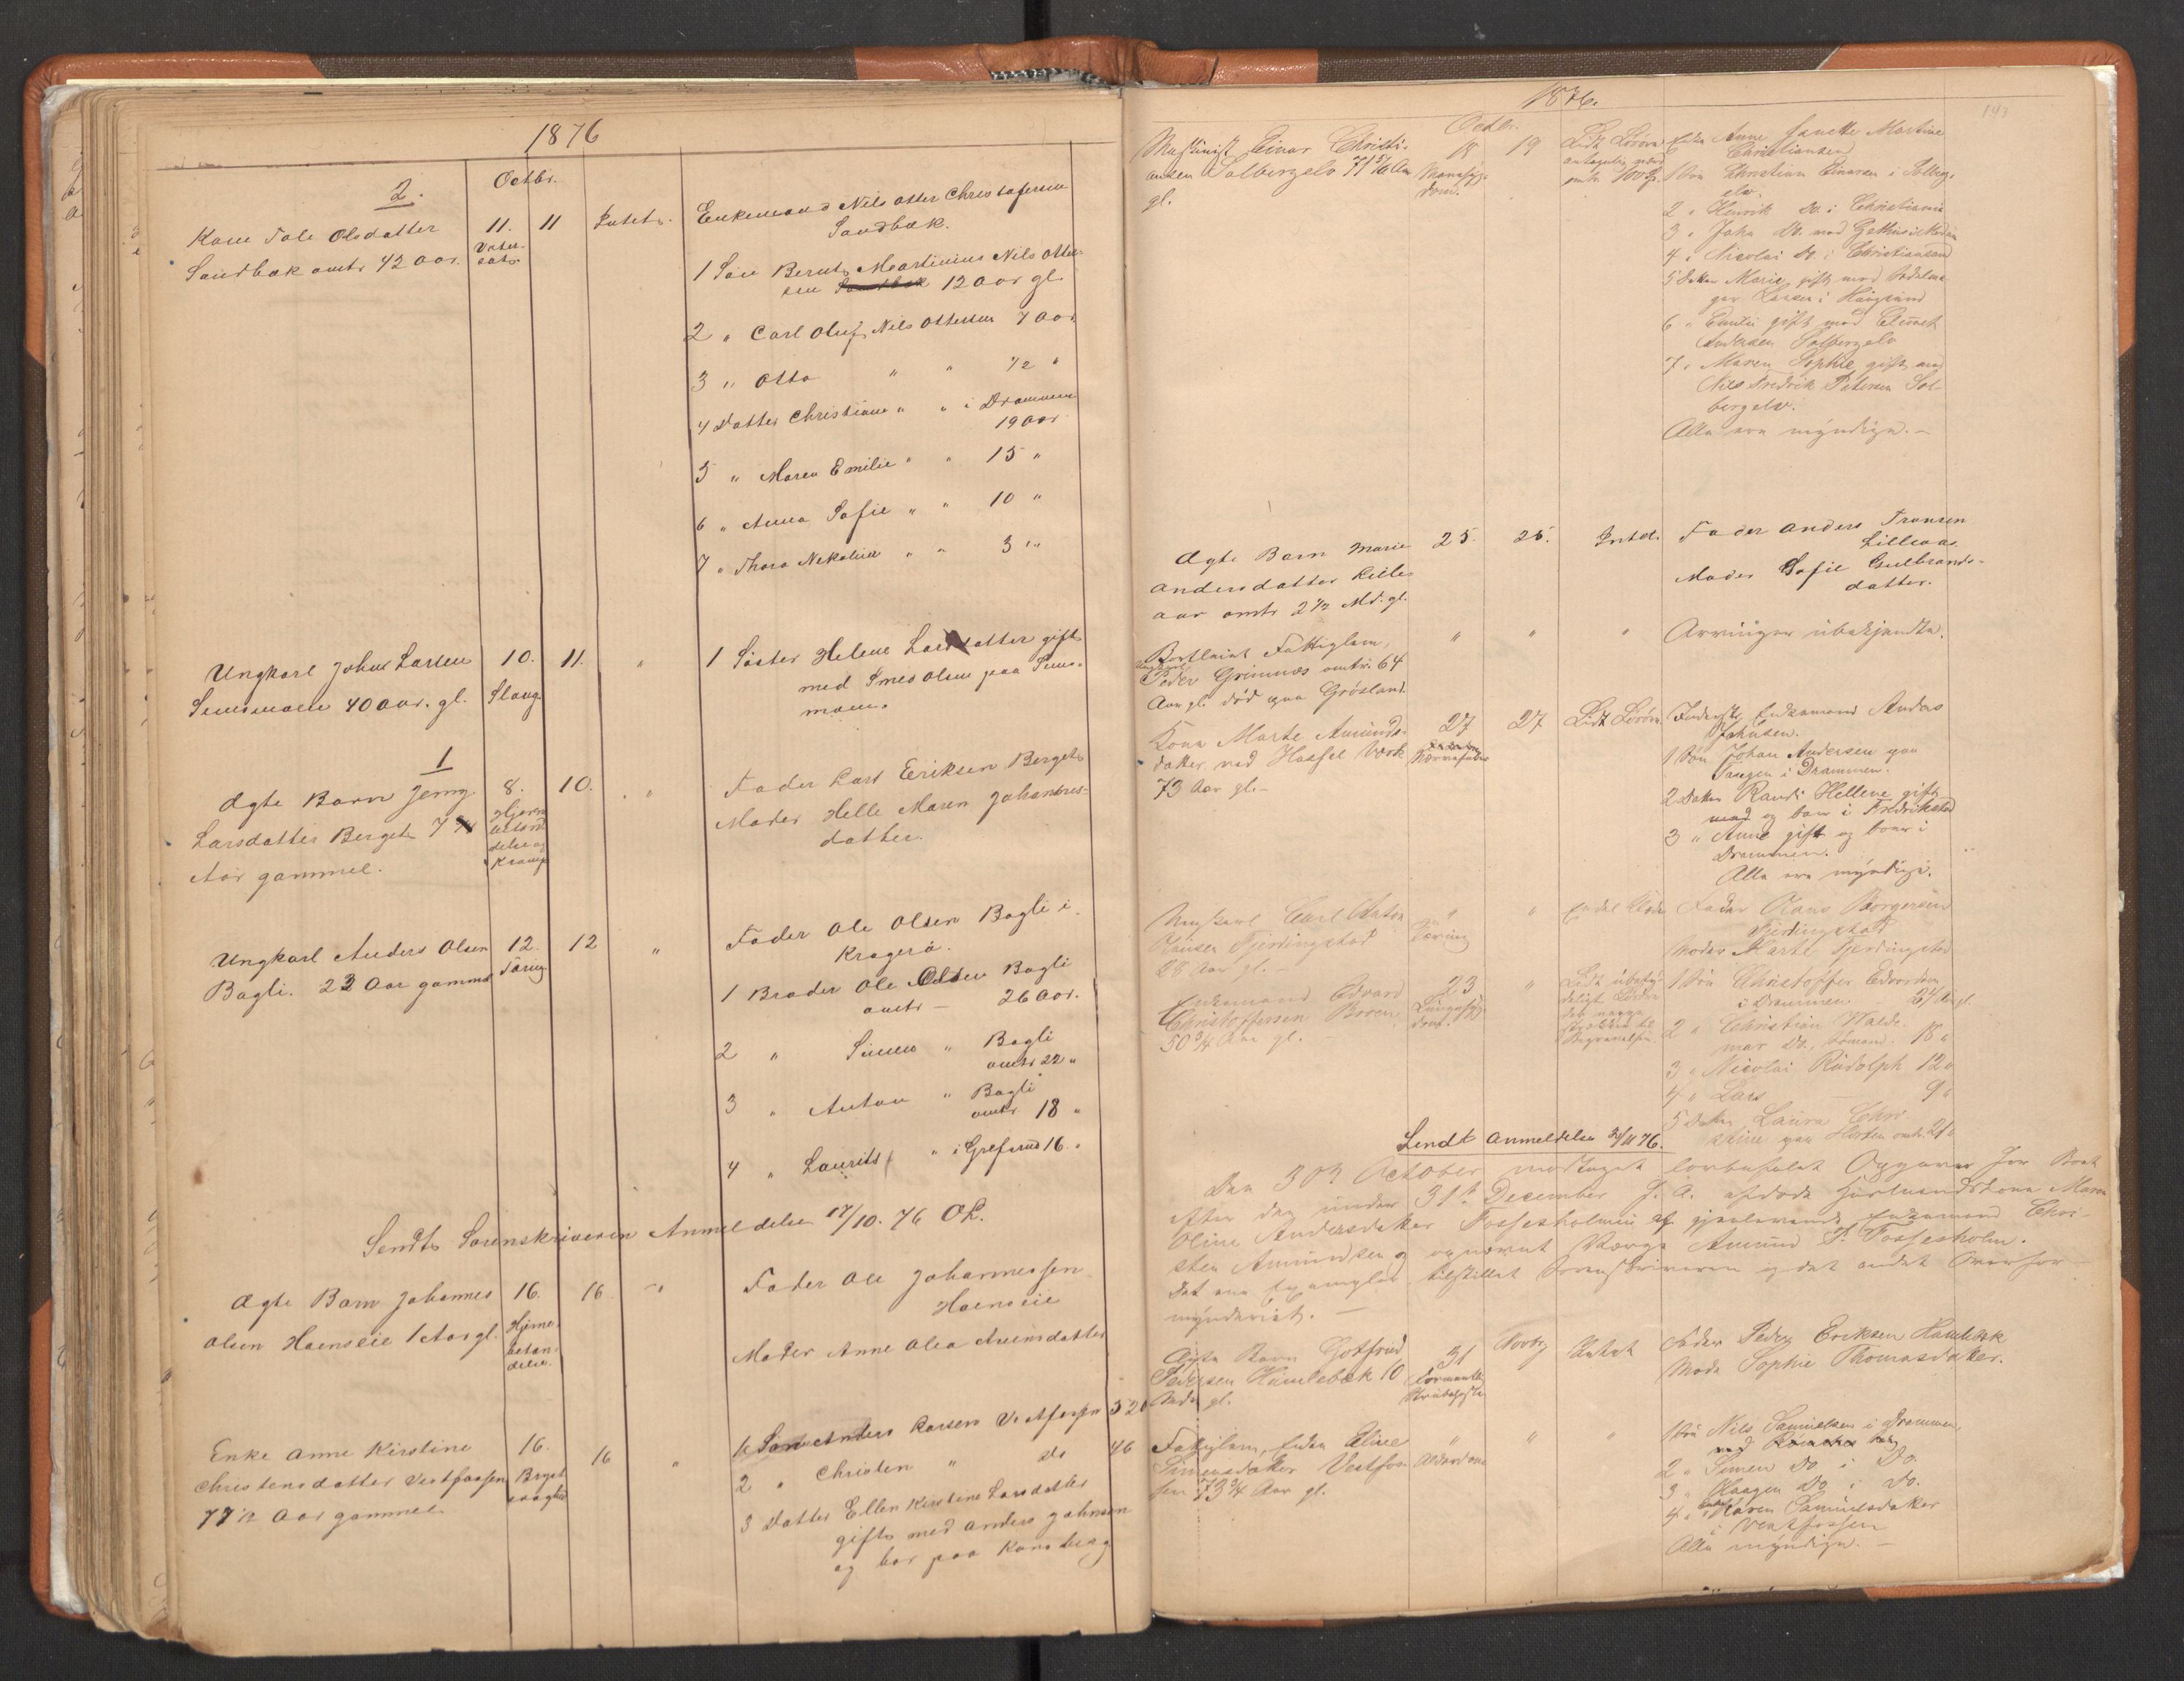 1876
2.
Octbr.
Kone Tale Olsdatter
Sandbæk omtr 42 aar.
11.
11
Intet.
Enkemand Nils Otter Christofersen
Sandbæk.
1 Søn Bernt Martinius Nils Otter-
sen 12 aar gl.
2 " Carl Oluf Nils Ottersen 7 aar
3 " Otto " " 1/2 "
4 Datter Christiane " " i Drammen
19 aar
5 " Maren Emilie " " 15 "
6 " Anna Sofie " " 10 "
7 " Thora Nikoline " " 3 "
Ungkarl Johan Larsen
40 aar. gl.
10.
Slaug
11.
"
1 Søster Helene Larsdatter gift
med Smed Olsen paa
1
Ægte Barn Jenny
Larsdatter Berget 7
Aar gammel.
8.
Hjerne
og
Kramp
10.
"
Fader Lars Eriksen Berget
Moder Helle Maren Johannes-
datter.
Ungkarl Anders Olsen
Bagli. 22 Aar gammel
12.
Tæring
12
"
Fader Ole Olsen Bagli i
Kragerø.
1 Broder Ole Olsen Bagli
omtr — 26 Aar.
2 " Simen " Bagli
omtr 22 "
3 " Anton " Bagli
omtr 18 "
4 " Laurits " i Grefsrud 16 "
Sendt Sorenskriveren Anmeldelse 17/10. 76 OL.
Ægte Barn Johannes
Olsen Hoenseie 1 Aar gl.
16.
Hjerne-
betæn-
delse.
16
"
Fader Ole Johannessen
Hoenseie
Moder Anne Olea
Enke Anne Kirstine
Christensdatter Vestfossen
77 1/2 Aar gammel
16.
Bryst
16
"
1 Søn Anders Larsen Vestfossen 52
2 " Christen " do 46
3 Datter Ellen Kirstine Larsdatter
gift med Anders Johnsen
og bor paa Kongsberg
1876.
Octbr.
Maskinist Einar Christi-
ansen Solbergelv 71 5/6 Aar
gl.
18
19
Lidt Løsøre
antagelig værd
omtr 100 Sp.
Enke Anne Janette Martine
Christiansen
1 Søn Christian Einarsen i Solberg-
elv.
2 " Henrik Do. i Christiania
3 " John Do. ved
4 " Nicolai Do. i Christiansand
5 Datter Marie, gift med
Larsen i Haugsund
6 " Emilie gift med
Andersen Solbergelv
7 " Maren Sophie gift med
Nils Fredrik Petersen Sol-
bergelv.
Alle ere myndige. —
Ægte Barn Marie
Andersdatter Lille-
aas omtr 2 1/2 Md. gl.
25.
25.
Intet.
Fader Anders Fransen
Lilleaas.
Moder Sofie Gulbrands-
datter.
Fattiglem,
Peder Grimnæs omtr. 64
Aar gl. død paa Grøsland.
"
"
"
Arvinger ubekjendte.
Kone Marte Amunds-
datter ved Hassel Værk
73 Aar gl. —
27
27
Lidt Løsøre.
Enkemand Anders
Johnsen.
1 Søn Johan Andersen paa
Tangen i Drammen.
2 Datter Randi Hellene gift
og boer i Fredrikstad
3 " Anne gift og boer i
Drammen.
Alle ere myndige.
Ungkarl Carl Anton
Hansen Fjerdingstad
28 Aar gl. —
"
Tæring
"
Endel Klæder
Fader Hans Borgersen
Fjerdingstad
Moder Marte Fjerdingstad
Enkemand Edvard
Christoffersen Boren
50 3/4 Aar gl.
23
Lungesyg-
dom.
"
Lidt ubety-
deligt Løsøre
det neppe
strækker til
Begravelsen
1 Søn Christoffer Edvardsen
i Drammen 24 Aar gl.
2 " Christian Walde-
mar Do. Sømand. 18 "
3 " Nicolai Rudolph 12 "
4 " Lars — 9 "
5 Datter Laura Chri-
stine paa Horten omtr. 21 "
Sendt Anmeldelse 2/11 76.
Den 30te October modtaget lovbefalet Opgaver for Boet
efter den under 31te December f. A. afdøde Huusmandskone Maren
Oline Andersdatter Fossesholmeie af gjenlevende Enkemand Chri-
sten Amundsen og opnævnt Værge Amund P. Fossesholm.
Det ene Exemplar tilstillet Sorenskriveren og det andet Overfor-
mynderiet. —
Ægte Barn Gotfred
Pedersen Humlebæk 10
Mdr gl.
31
Formentl.
Strubehoste
Novbr
Intet
Fader Peder Eriksen Humlebæk
Moder Sophie Thomasdatter.
Fattiglem, Enke Eline
Simensdatter Vestfos-
sen 73 3/4 Aar gl.
"
Alderdom
"
"
1 Søn Nils Samuelsen i Drammen,
2 " Simen Do i Do.
3 " Haagen Do i Do.
4 " Enke Karen Samuelsdatter
i Vestfossen
Alle myndige. —